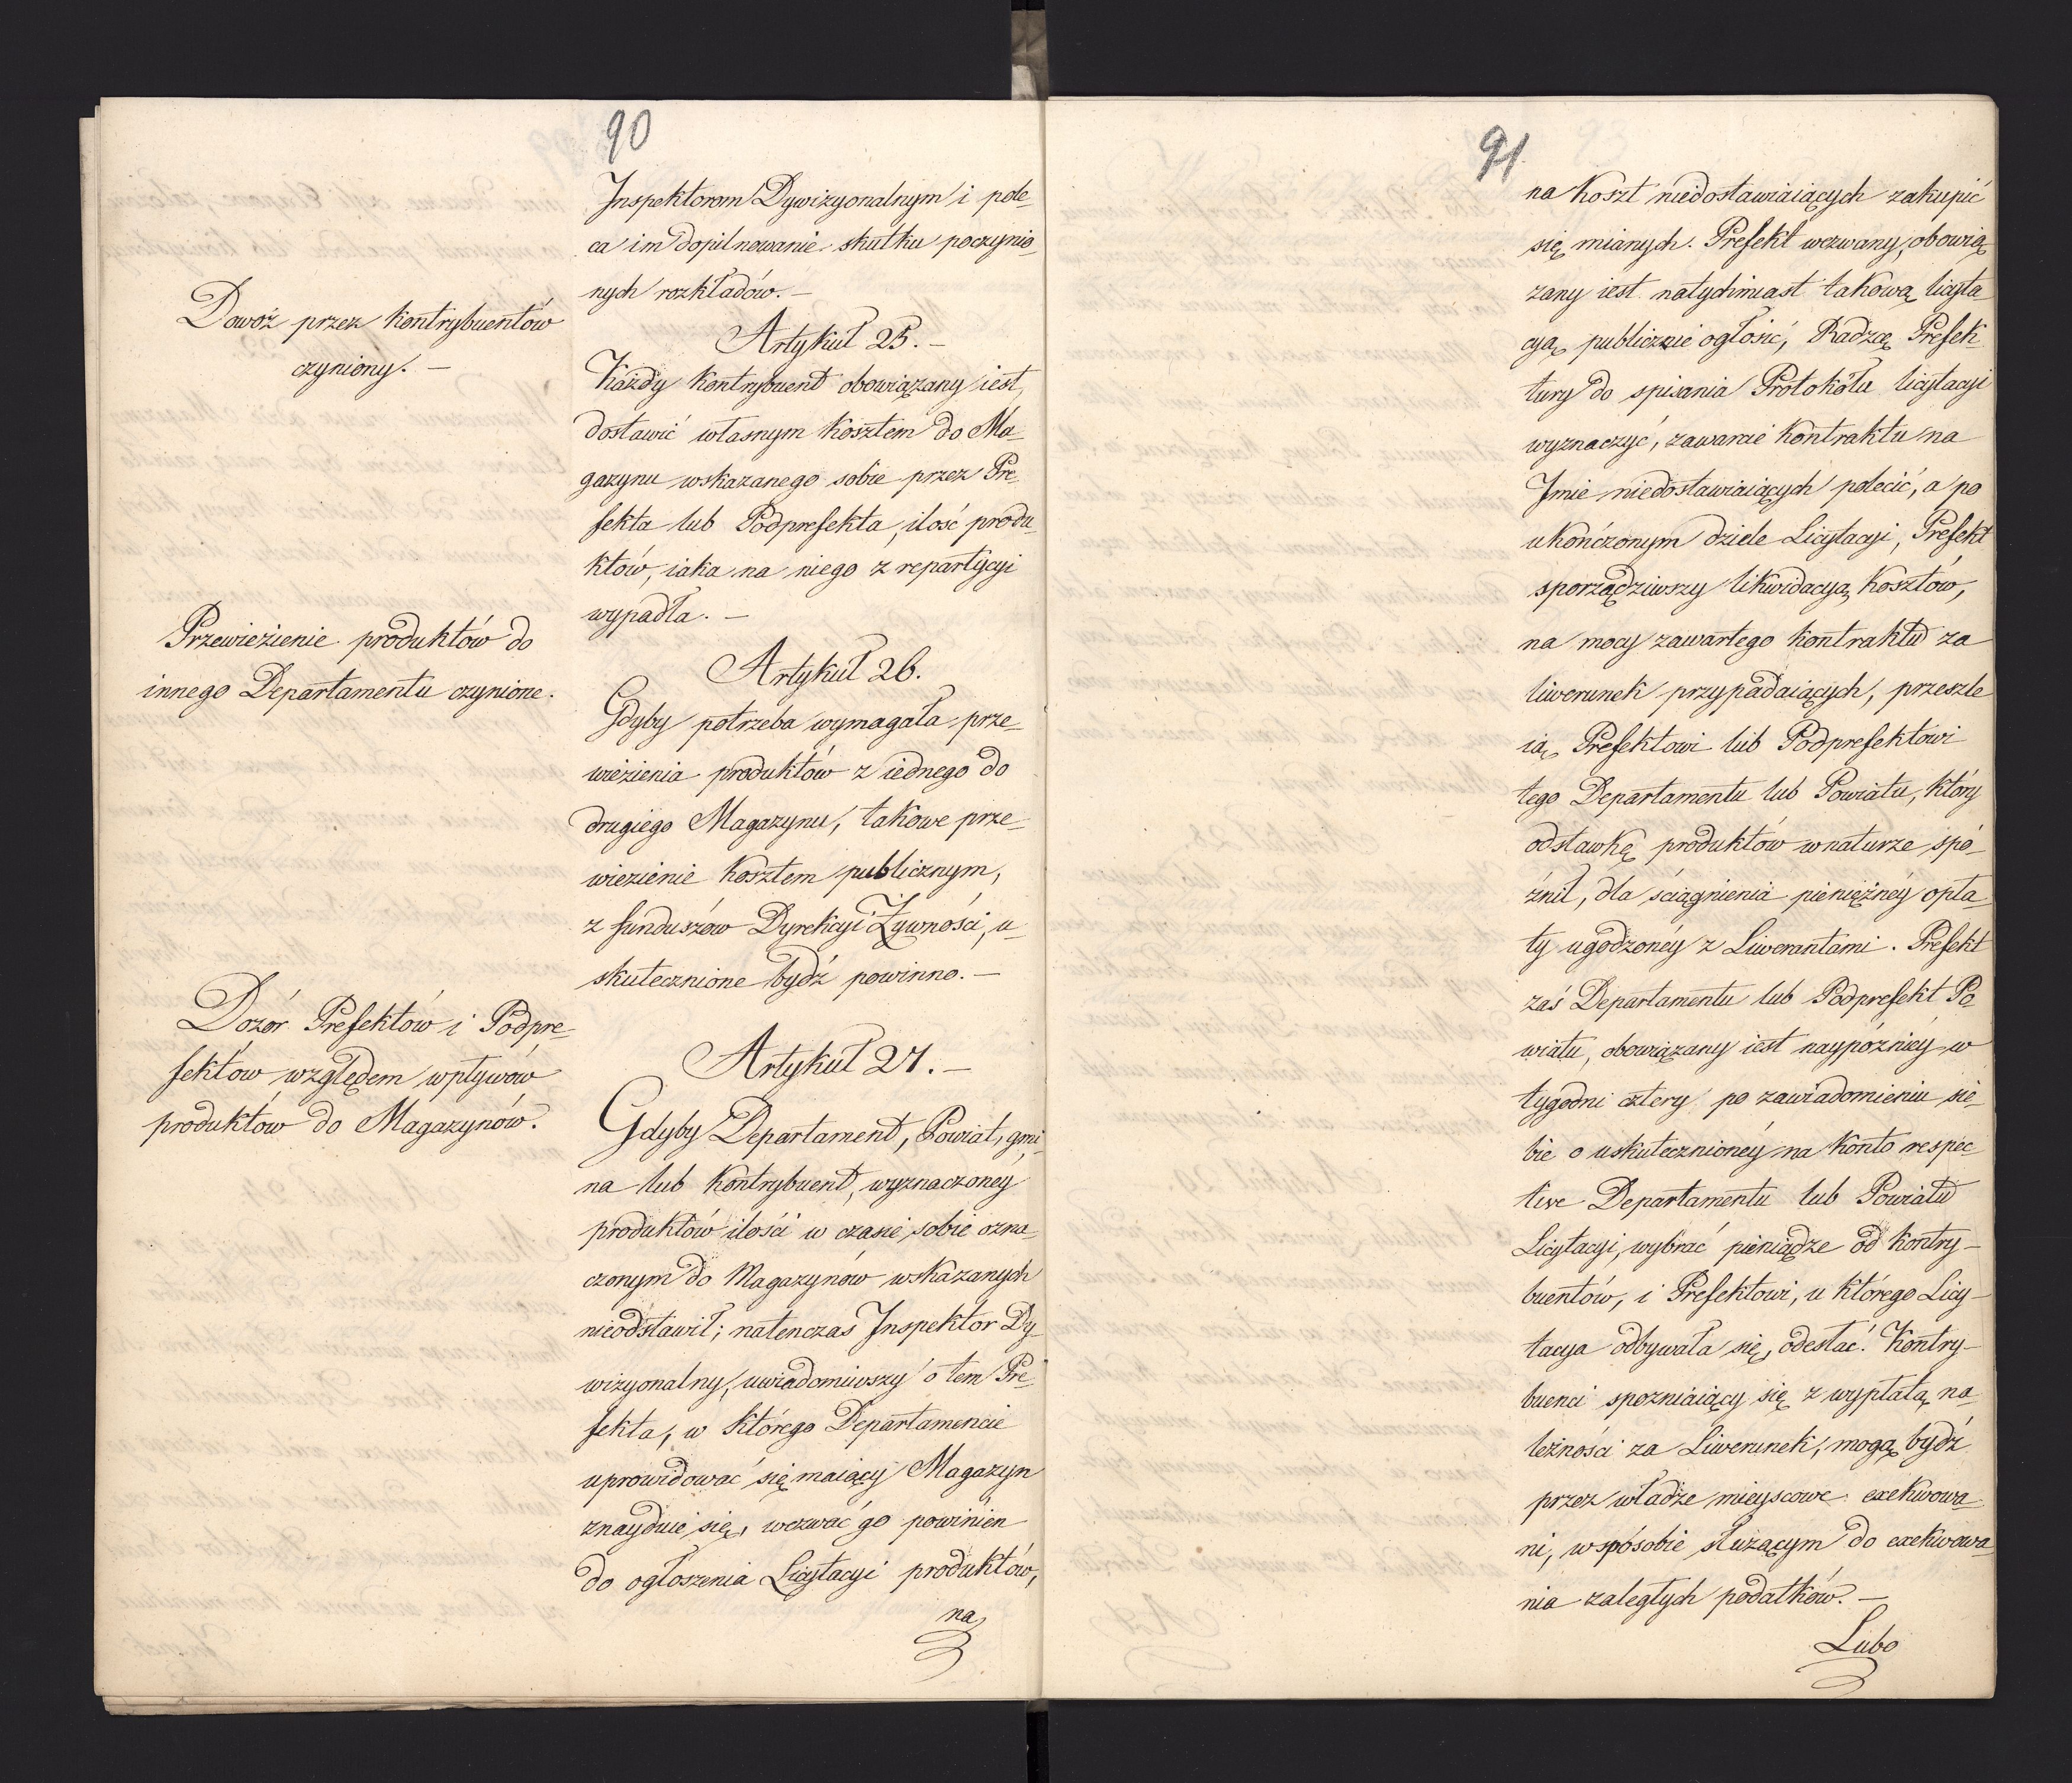 90
Inspektorom Dywizyonalnym i pole-
ca im dopilnowanie skutku poczynio-
nych rozkładów. —
Dowóz przez kontrybuentów
czyniony. —
Artykuł 25. —
Każdy kontrybuent obowiązany iest,
dostawić własnym kosztem do Ma-
gazynu wskazanego sobie przez Pre-
fekta lub Podprefekta, ilość produ-
któw, iaka na niego z repartycyi
wypadła. —
Przewiezienie produktów do
innego Departamentu czynione.
Artykuł 26.
Gdyby potrzeba wymagała prze-
wiezienia produktów z iednego do
drugiego Magazynu, takowe prze-
wiezienie kosztem publicznym,
z funduszów Dyrekcyi Żywności, u-
skutecznione bydź powinno. —
Dozór Prefektów i Podpre-
fektów względem wpływów
produktów do Magazynów.
Artykuł 27. —
Gdyby Departament, Powiat, gmi-
na lub kontrybuent, wyznaczoney
produktów ilości w czasie sobie ozna-
czonym do Magazynów wskazanych
nieodstawił; natenczas Inspektor Dy-
wizyonalny, uwiadomiwszy o tem Pre-
fekta, w którego Departamencie
uprowidować się maiący Magazyn
znayduie się, wezwać go powinien
do ogłoszenia Licytacyi produktów,
na
91
na koszt niedostawiaiących zakupić
się mianych. Prefekt wezwany, obowią-
zany iest natychmiast takową licyta
cyą publicznie ogłosić, Radzcę Prefek-
tury do spisania Protokółu licytacyi
wyznaczyć, zawarcie kontraktu na
Imie niedostawiaiących polecić, a po
ukończonym dziele Licytacyi, Prefekt
sporządziwszy likwidacyą kosztów,
na mocy zawartego kontraktu za
liwerunek przypadaiących, przeszle
ią Prefektowi lub Podprefektowi
tego Departamentu lub Powiatu, który
odstawkę produktów w naturze spó-
źnił, dla ściągnienia pieniężnéy opła-
ty ugodzonéy z Liwerantami. Prefekt
zaś Departamentu lub Podprefekt Po-
wiatu, obowiązany iest naypóźniéy w
tygodni cztery po zawiadomieniu sie-
bie o uskutecznionéy na konto respec
tive Departamentu lub Powiatu
Licytacyi, wybrać pieniądze od kontry-
buentów, i Prefektowi, u którego Licy-
tacya odbywała się, odesłać. Kontry-
buenci spozniaiący się z wypłatą na-
leżności za Liwerunek, mogą bydź
przez władze mieyscowe exekwowa-
ni, w sposobie służącym do exekwowa-
nia zaległych podatków. —
Lubo